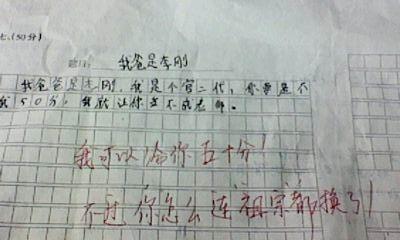 七、(50分)
题目: 我爸是李刚
我爸爸是李刚,我是个官二代,你要是不
我50分,我就让你当不成老师。
我可以给你五十分!
不过你怎么连祖宗都换了!